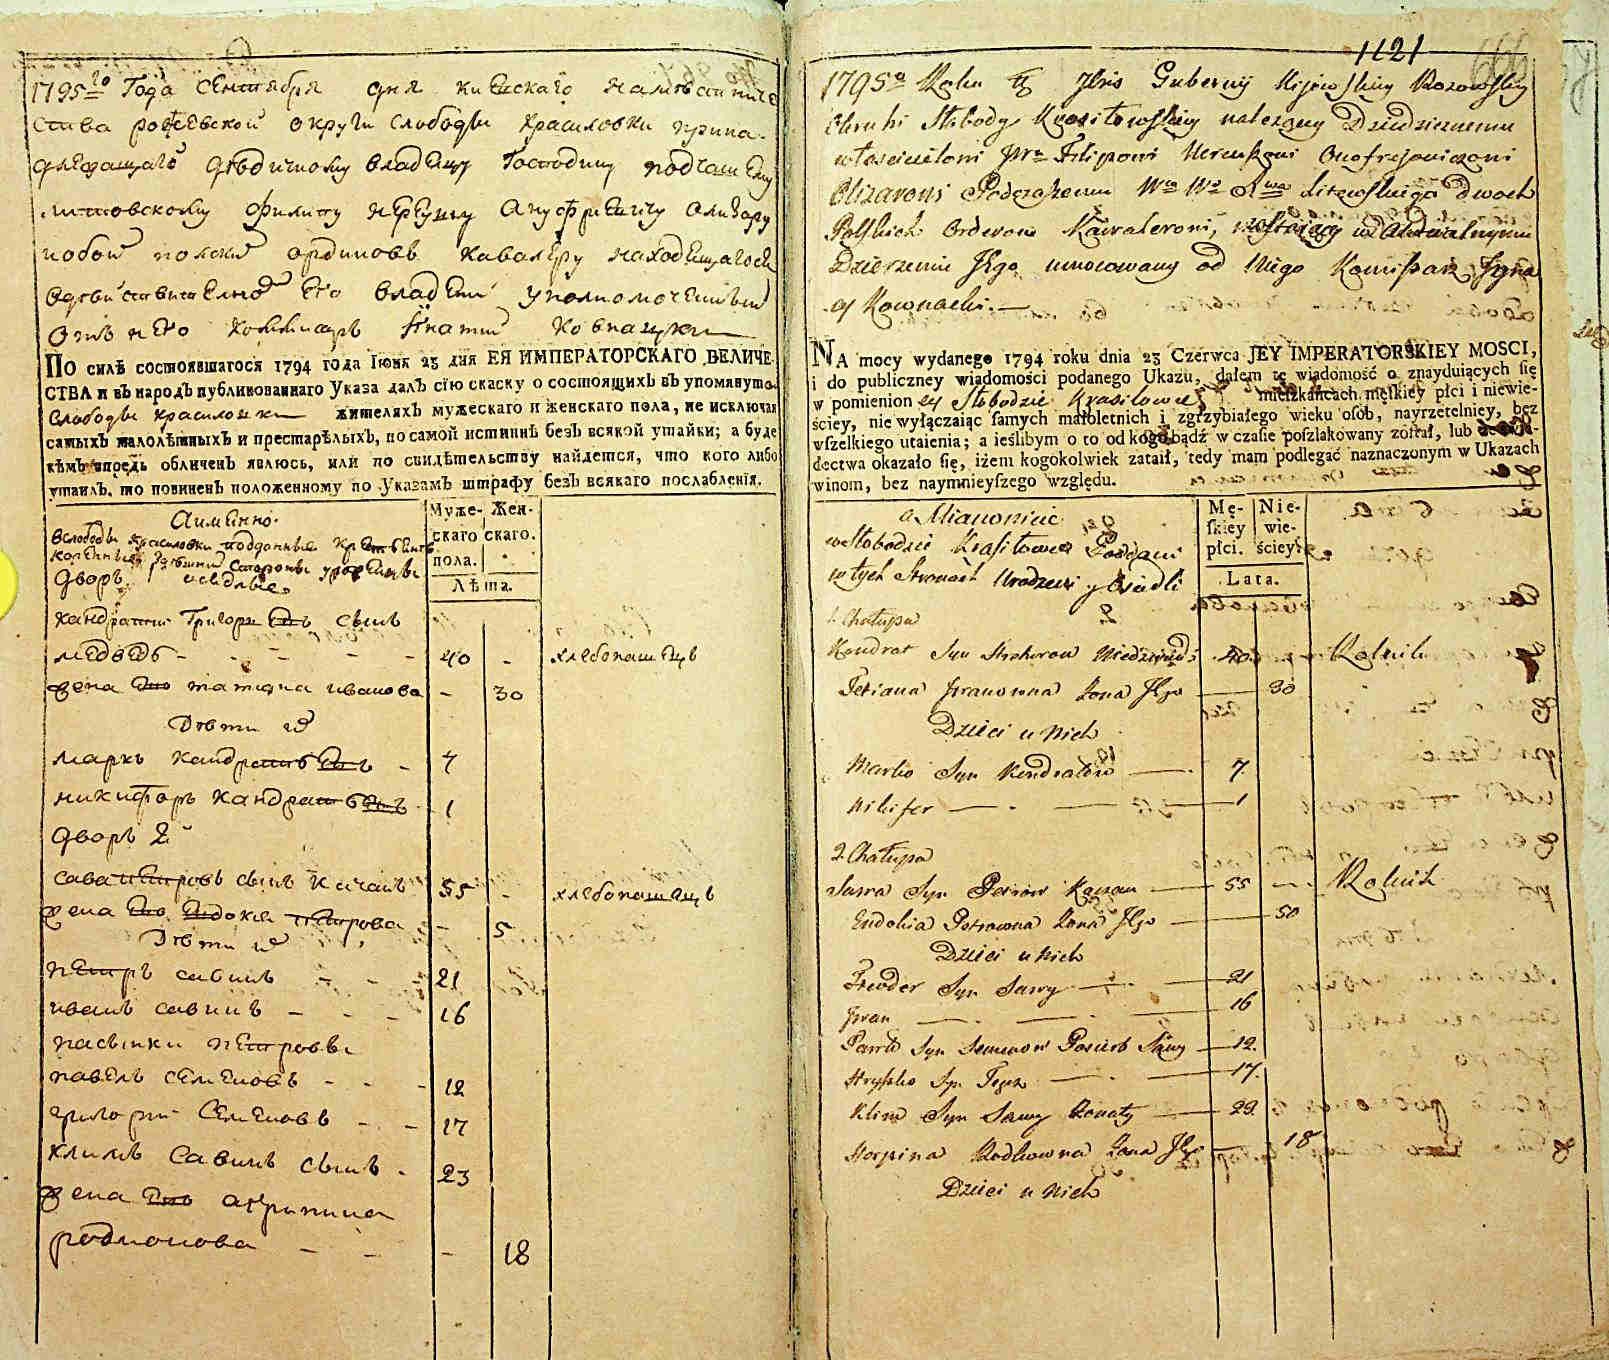 1795го Года сентября дня киевскаго намѣстниче
ства росѣевской округи слободы красиловки прина-
длежащаго дѣдичному владѣлцу господину подчашему
литовскому филипу нереушу ануфриевичу олизару
ордыновъ кавалеру находящагося
его владении уполномоченный
отъ него коммисаръ Игнатий ковнацки
ПО силѣ состоявшагося 1794 года Iюня 23 дня ЕЯ ИМПЕРАТОРСКАГО ВЕЛИЧЕ-
СТВА и въ народъ публикованнаго Указа далъ сïю скаску о состоящихъ въ упомянуто-
слободы красиловки жителяхъ мужескаго и женскаго пола, не исключая
самыхъ малолѣтныхъ и престарѣлыхъ, по самой истиннѣ безъ всякой утайки; а буде
кѣмъ впредь обличенъ явлюсь, или по свидѣтельству найдется, что кого либо
утаилъ, то повиненъ положенному по Указамъ штрафу безъ всякаго послабленïя.
Аименно.
вслободы красиловки подданные
Дворъ
Муже-
скаго
пола.
Жен-
скаго.
Лѣта.
кандратий Григорьевъ сынъ
медведь 40 хлебопашецъ
жена ево татяна иванова 30
Дѣти их
маркъ кандратьевъ 7
никифоръ кандратьевъ 1
дворъ 2й
сава петровъ сынъ качанъ 55 хлебопашецъ
жена ево евдокия петрова 5
Дѣти их
петръ савинъ 21
иванъ савинъ 16
пасынки петровы
павелъ семеновъ 12
григорий семеновъ 17
климъ савинъ сынъ 23
жена ево агрипина
родионова 18
1121
1795o Roku 7bris Guberny Kijowskiey
Okruhi Słobody Krasiłowskiey należący Dziedzicznemu
włościcielowi Filipowi Nereuszowi Onofrejowiczowi
Olizarowi Podczaszemu Litewskiego dwoch
Polskich Orderow Kawalerowi, w Aktualnym
Dzierżeniu Jego umocowany od Niego Komissarz Igna
cy Kownacki.
NA mocy wydanego 1794 roku dnia 23 Czerwca JEY IMPERATORSKIEY MOSCI,
i do publiczney wiadomości podanego Ukazu, dałem tę wiadomość o znayduiących się
w pomienioney Słobodzie Krasiłowce mieszkańcach męskiey płci i niewie-
ściey, nie wyłączaiąc samych małoletnich i zgrzybiałego wieku osób, nayrzetelniey, bez
wszelkiego utaienia; a ieślibym o to od kogo bądź w czasie poszlakowany został, lub
dectwa okazało się, iżem kogokolwiek zataił, tedy mam podlegać naznaczonym w Ukazach
winom, bez naymnieyszego względu.
a Mianowicie
w Słobodzie Krasiłowce Poddani
w tych Stronach Urodzeni y Osiedli
Mę-
skiey
płci.
Nie-
wie-
ściey.
Lata.
1. Chałupa
Kondrat Syn Niedzwiedz 40 Rolnik
Tetiana Iwanowna Zona Jego 30
Dzieci u Nich
Marko Syn Kondratow 7
Nikifer 1
2. Chałupa
Sawa Syn Petrow Kaczan 55 Rolnik
Eudokia Petrowna Zona Jego 50
Dzieci u Nich
Fteoder Syn Sawy 21
Iwan 16
Paweł Syn Semenow Pasierb Sawy 12.
Hryszko Syn Tegoz 17.
Klim Syn Sawy Zonaty 23.
Horpina Rodkowna Zona Jego 18
Dzieci u Nich